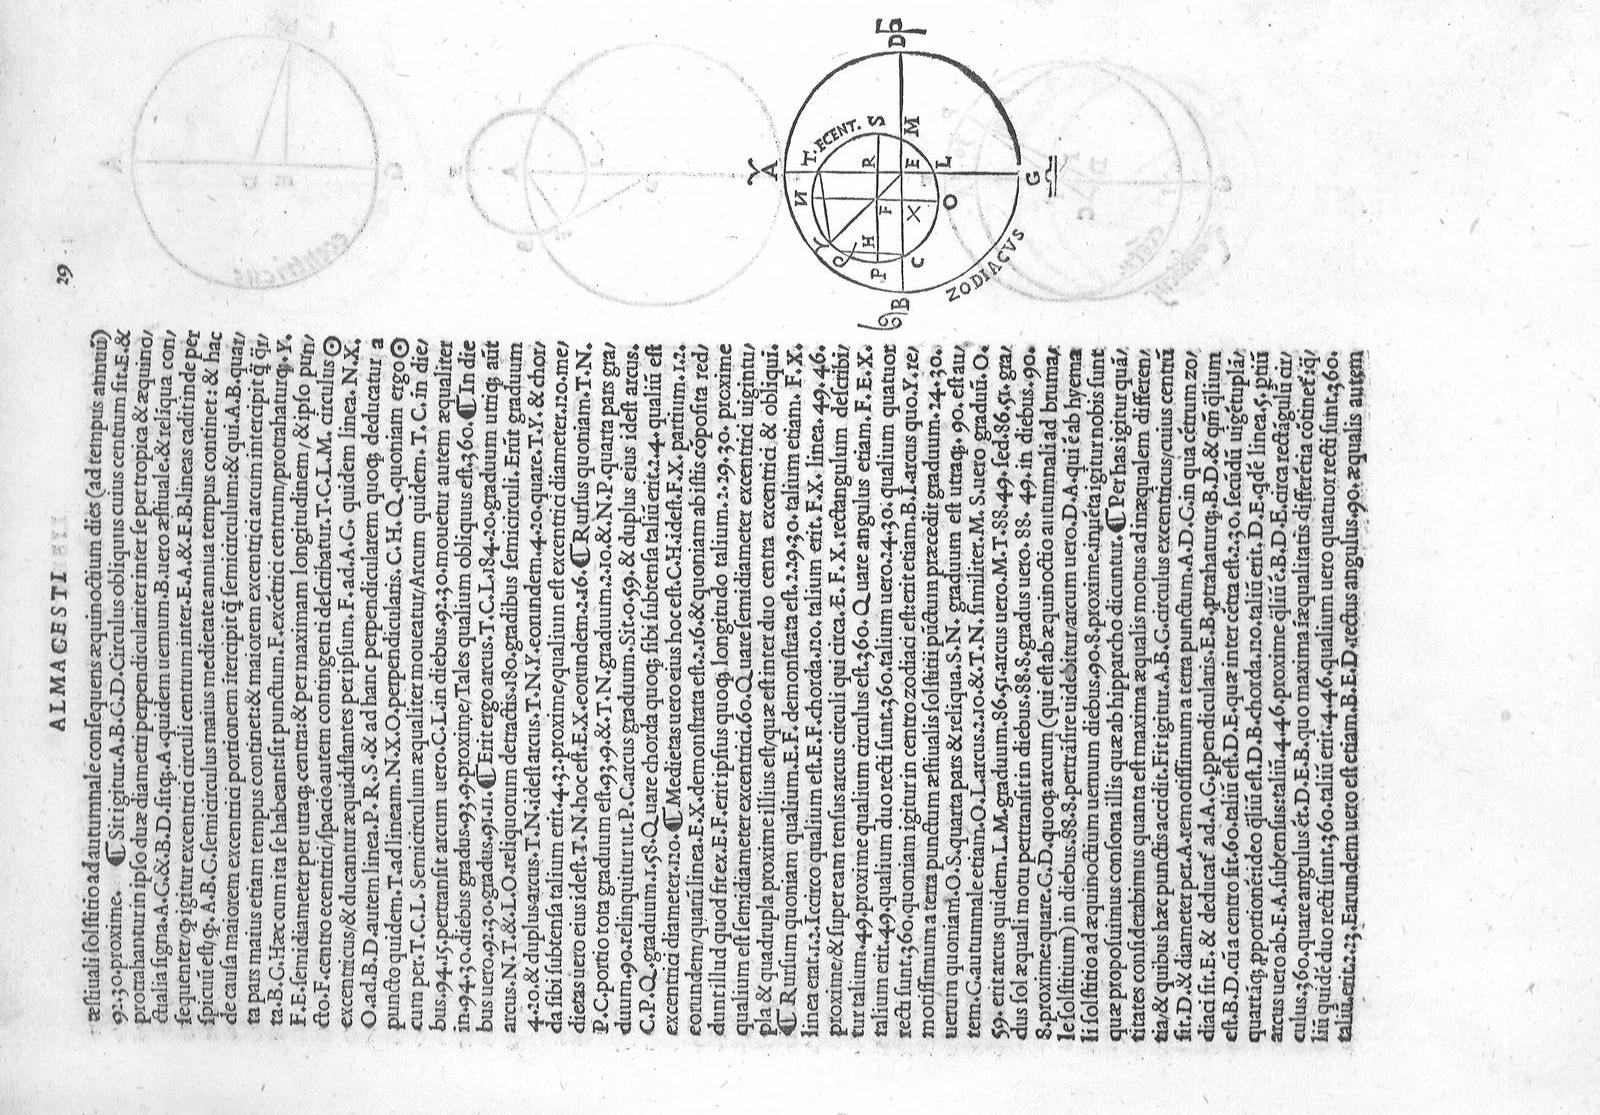 ALMAGESTI
29
æstiuali solstitio ad autumnalé consequens æquinoctium dies (ad tempus abnuũ)
92.30.proxime. ⁋Sit igitur.A.B.G.D.Circulus obliquus cuius centrum sit.E.&
protrahantur in ipso duæ diametri perpendiculariter inter se per tropica & æquino/
ctialia signa.A.G.&.B.D.sitq; A.quidem uernum.B.uero æstiuale.& reliqua con/
sequenter,q igitur excentrici circuli centrum inter.E.A.&.E.B.lineas cadit inde per
spicuũ est/q.A.B.G.semicirculus maius medietate annia tempus continet: & hac
de causa maiorem excentrici portionem itercipit q̃ semicirculum:& qui.A.B.quar/
ta pars maius etiam tempus continet:& maiorem excentrici arcum intercipit q̃ q̃r/
ta.B.G.Hæc cum ita se habeant:sit punctum.F.excétrici centrum/protrahaturq;.Y.
F.E.semidiameter per utraq; centra:& per maximam longitudinem/& ipso pun/
cto.F.centro ecentrici/spacio autem contingenti describatur.T.C.L.M.circulus ☉
excentricus/& ducantur æquidistantes per ipsum.F.ad.A.G. quidem linea.N.X.
O.ad.B.D.autem linea.P.R.S.& ad hanc perpendicularem quoq; deducatur a
puncto quidem.T.ad lineam.N.X.O.perpendicularis.C.H.Q.quoniam ergo ☉
cum per.T.C.L. Semicirculum æqualiter moueatur/Arcum quidem.T.C.in die/
bus.94.15.pertransit arcum uero.C.L.in diebus.92.30.mouetur autem æqualiter
in.94.30.diebus gradus.93.9.proxime/Tales qualium obliquus est.360.⁋In die
bus uero.92.30.gradus.91.11.⁋Erit ergo arcus.T.C.L.184.20.graduum utriq; aũt
arcus.N.T.&.L.O.reliquorum detractis.180.gradibus semicirculi.Erũt graduum
4.20.& duplus arcus.T.N.idest arcus.T.N.Y.eorundem.4.20.quare.T.Y.& chor/
da sibi subtensa talium erit.4.32.proxime/qualium est excentrici diameter.120.me/
dietas uero eius idest.T.N.hoc est.E.X.eorundem.2.16.⁋Rursus quoniam.T.N.
P.C.portio tota graduum est.93.9.&.T.N.graduum.2.10.&.N.P.quarta pars gra/
duum.90.relinquitur ut.P.C.arcus graduum. Sit.0.59. & duplus eius idest arcus.
C.P.Q.graduum.1.58.Quare chorda quoq; sibi subtensa taliũ erit.2.4.qualiũ est
excentrici diameter.120.⁋Medietas uero eius hoc est.C.H.idest.F.X. partium.1.2.
eorundem/quarũ linea.E.X.demonstrata est.2.16.& quoniam ab istis cõposita red/
dunt illud quod fit ex.E.F.erit ipsius quoq; longitudo talium.2.29.30. proxime
qualium est semidiameter excentrici.60.Quare semidiameter excentrici uigintu/
pla & quadrupla proxime illius est/quæ est inter duo centra excentrici & obliqui.
⁋Rursum quoniam qualium.E.F. demonstrata est.2.29.30. talium etiam. F.X.
linea erat.1.2.Iccirco qualium est.E.F.chorda.120. talium erit. F.X. linea.49.46.
proxime/& super eam tensus arcus circuli qui circa.E.F.X.rectangulum describi/
tur talium.49.proxime qualium circulus est.360. Quare angulus etiam. F.E.X.
talium erit.49.qualium duo recti sunt.360.talium uero.24.30.qualium quatuor
recti sunt.360.quoniam igitur in centro zodiaci est:erit etiam.B.L.arcus quo.Y.re/
motissimum a terra punctum æstiualis solstitii pũctum præcedit graduum.24.30.
uerum quoniam.O.S.quarta pars & reliqua.S.N. graduum est utraq;. 90. est au/
tem.G.autumnale etiam.O.L.arcus.2.10.&.T.N. similiter.M.S.uero graduũ.0.
59. erit arcus quidem.L.M.graduum.86.51.arcus uero.M.T.88.49.sed.86.51.gra/
dus sol æquali motu pertransit in diebus.88.8.gradus uero. 88. 49. in diebus.90.
8.proxime:quare.G.D.quoq; arcum (qui est ab æquinoctio autumnali ad bruma/
le solstitium) in diebus.88.8.pertrásire uidebitur/arcum uero.D.A.qui é ab hyema
li solstitio ad æquinoctium uernum diebus.90.8.proxime.inuéta igitur nobis sunt
quæ proposuimus consona illis quæ ab hipparcho dicuntur.⁋Per has igitur quá/
titates considerabimus quanta est maxima æqualis motus ad inæqualem differen/
tia/& quibus hæc punctis accidit.Fit igitur.A.B.G.circulus excentricus/cuius centrũ
sit.D.& diameter per.A.remotissimum a terra punctum.A.D.G.in qua cétrum zo/
diaci sit.E. & deducat̃ ad.A.G.ppendicularis.E.B.ptrahaturq;.B.D.& qm̃ qlium
est.B.D.cũ a centro sit.60.taliũ est.D.E.quæ inter cétra est.2.30. secũdũ uigétuplá/
quartáq; pportioné:ideo qliũ est.D.B.chorda.120.taliũ erit.D.E.qdé linea.5.ptiũ
arcus uero ab.E.A.subtensus:taliũ.4.46.proxime qliũ é.B.D.E.circa rectágulũ cir/
culus.360.quare angulus ét.D.E.B.quo maxima iæqualitatis differétia cótinet̃:iq/
liũ quidé duo recti sunt.360.taliũ erit.4.46.qualium uero quatuor recti sunt.360.
taliũ.erit.2.23.Earundem uero est etiam.B.E.D.rectus angulus.90.æqualis autem
A
T.ECENT.
S
M
D
N
R
E
L
G
F
X
O
H
P
C
B
Q
Y
ZODIACVS